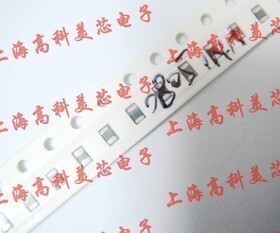 上海高科美芯电子
上海高科美芯电子
上海高科美芯电子